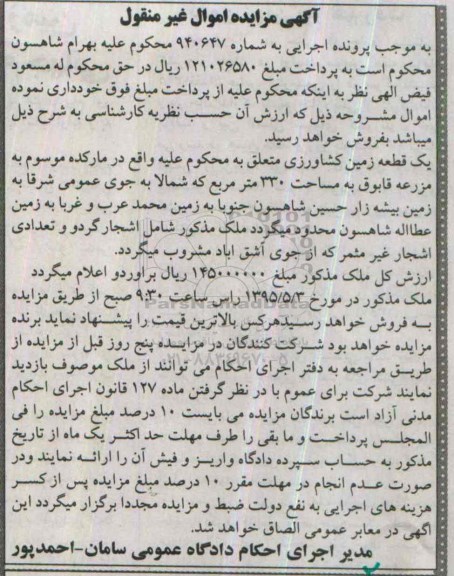 آگهی مزایده اموال غیر منقول
به موجب پرونده اجرایی به شماره ۹۴۰۶۴۷ محکوم علیه بهرام شاهسون
محکوم است به پرداخت مبلغ ۱۲۱۰۲۶۵۸۰ ریال در حق محکوم له مسعود
فیض الهی نظر به اینکه محکوم علیه از پرداخت مبلغ فوق خودداری نموده
اموال مشروحه ذیل که ارزش آن حسب نظریه کارشناسی به شرح ذیل
میباشد بفروش خواهد رسید.
یک قطعه زمین کشاورزی متعلق به محکوم علیه واقع در مارکده موسوم به
مزرعه قابوق به مساحت ۳۳۰ متر مربع که شمالا به جوی عمومی شرقا به
زمین بیشه زار حسین شاهسون جنوبا به زمین محمد عرب و غربا به زمین
عطااله شاهسون محدود میگردد ملک مذکور شامل اشجار گردو و تعدادی
اشجار غیر مثمر که از جوی آشق اباد مشروب میگردد.
ارزش کل ملک مذکور مبلغ ۱۴۵۰۰۰۰۰۰ ریال براوردو اعلام میگردد
ملک مذکور در مورخ ۱۳۹۵/۵/۳ راس ساعت ۹:۳۰ صبح از طریق مزایده
به فروش خواهد رسیدهرکس بالاترین قیمت را پیشنهاد نماید برنده
مزایده خواهد بود شرکت کنندگان در مزایده پنج روز قبل از مزایده از
طریق مراجعه به دفتر اجرای احکام می توانند از ملک موصوف بازدید
نمایند شرکت برای عموم با در نظر گرفتن ماده ۱۲۷ قانون اجرای احکام
مدنی آزاد است برندگان مزایده می بایست ۱۰ درصد مبلغ مزایده را فی
المجلس پرداخت و ما بقی را ظرف مهلت حد اکثر یک ماه از تاریخ
مذکور به حساب سپرده دادگاه واریز و فیش آن را ارائه نمایند ودر
صورت عدم انجام در مهلت مقرر ۱۰ درصد مبلغ مزایده پس از کسر
هزینه های اجرایی به نفع دولت ضبط و مزایده مجددا برگزار میگردد این
اگهی در معابر عمومی الصاق خواهد شد.
مدیر اجرای احکام دادگاه عمومی سامان-احمدپور
ParsNamadData